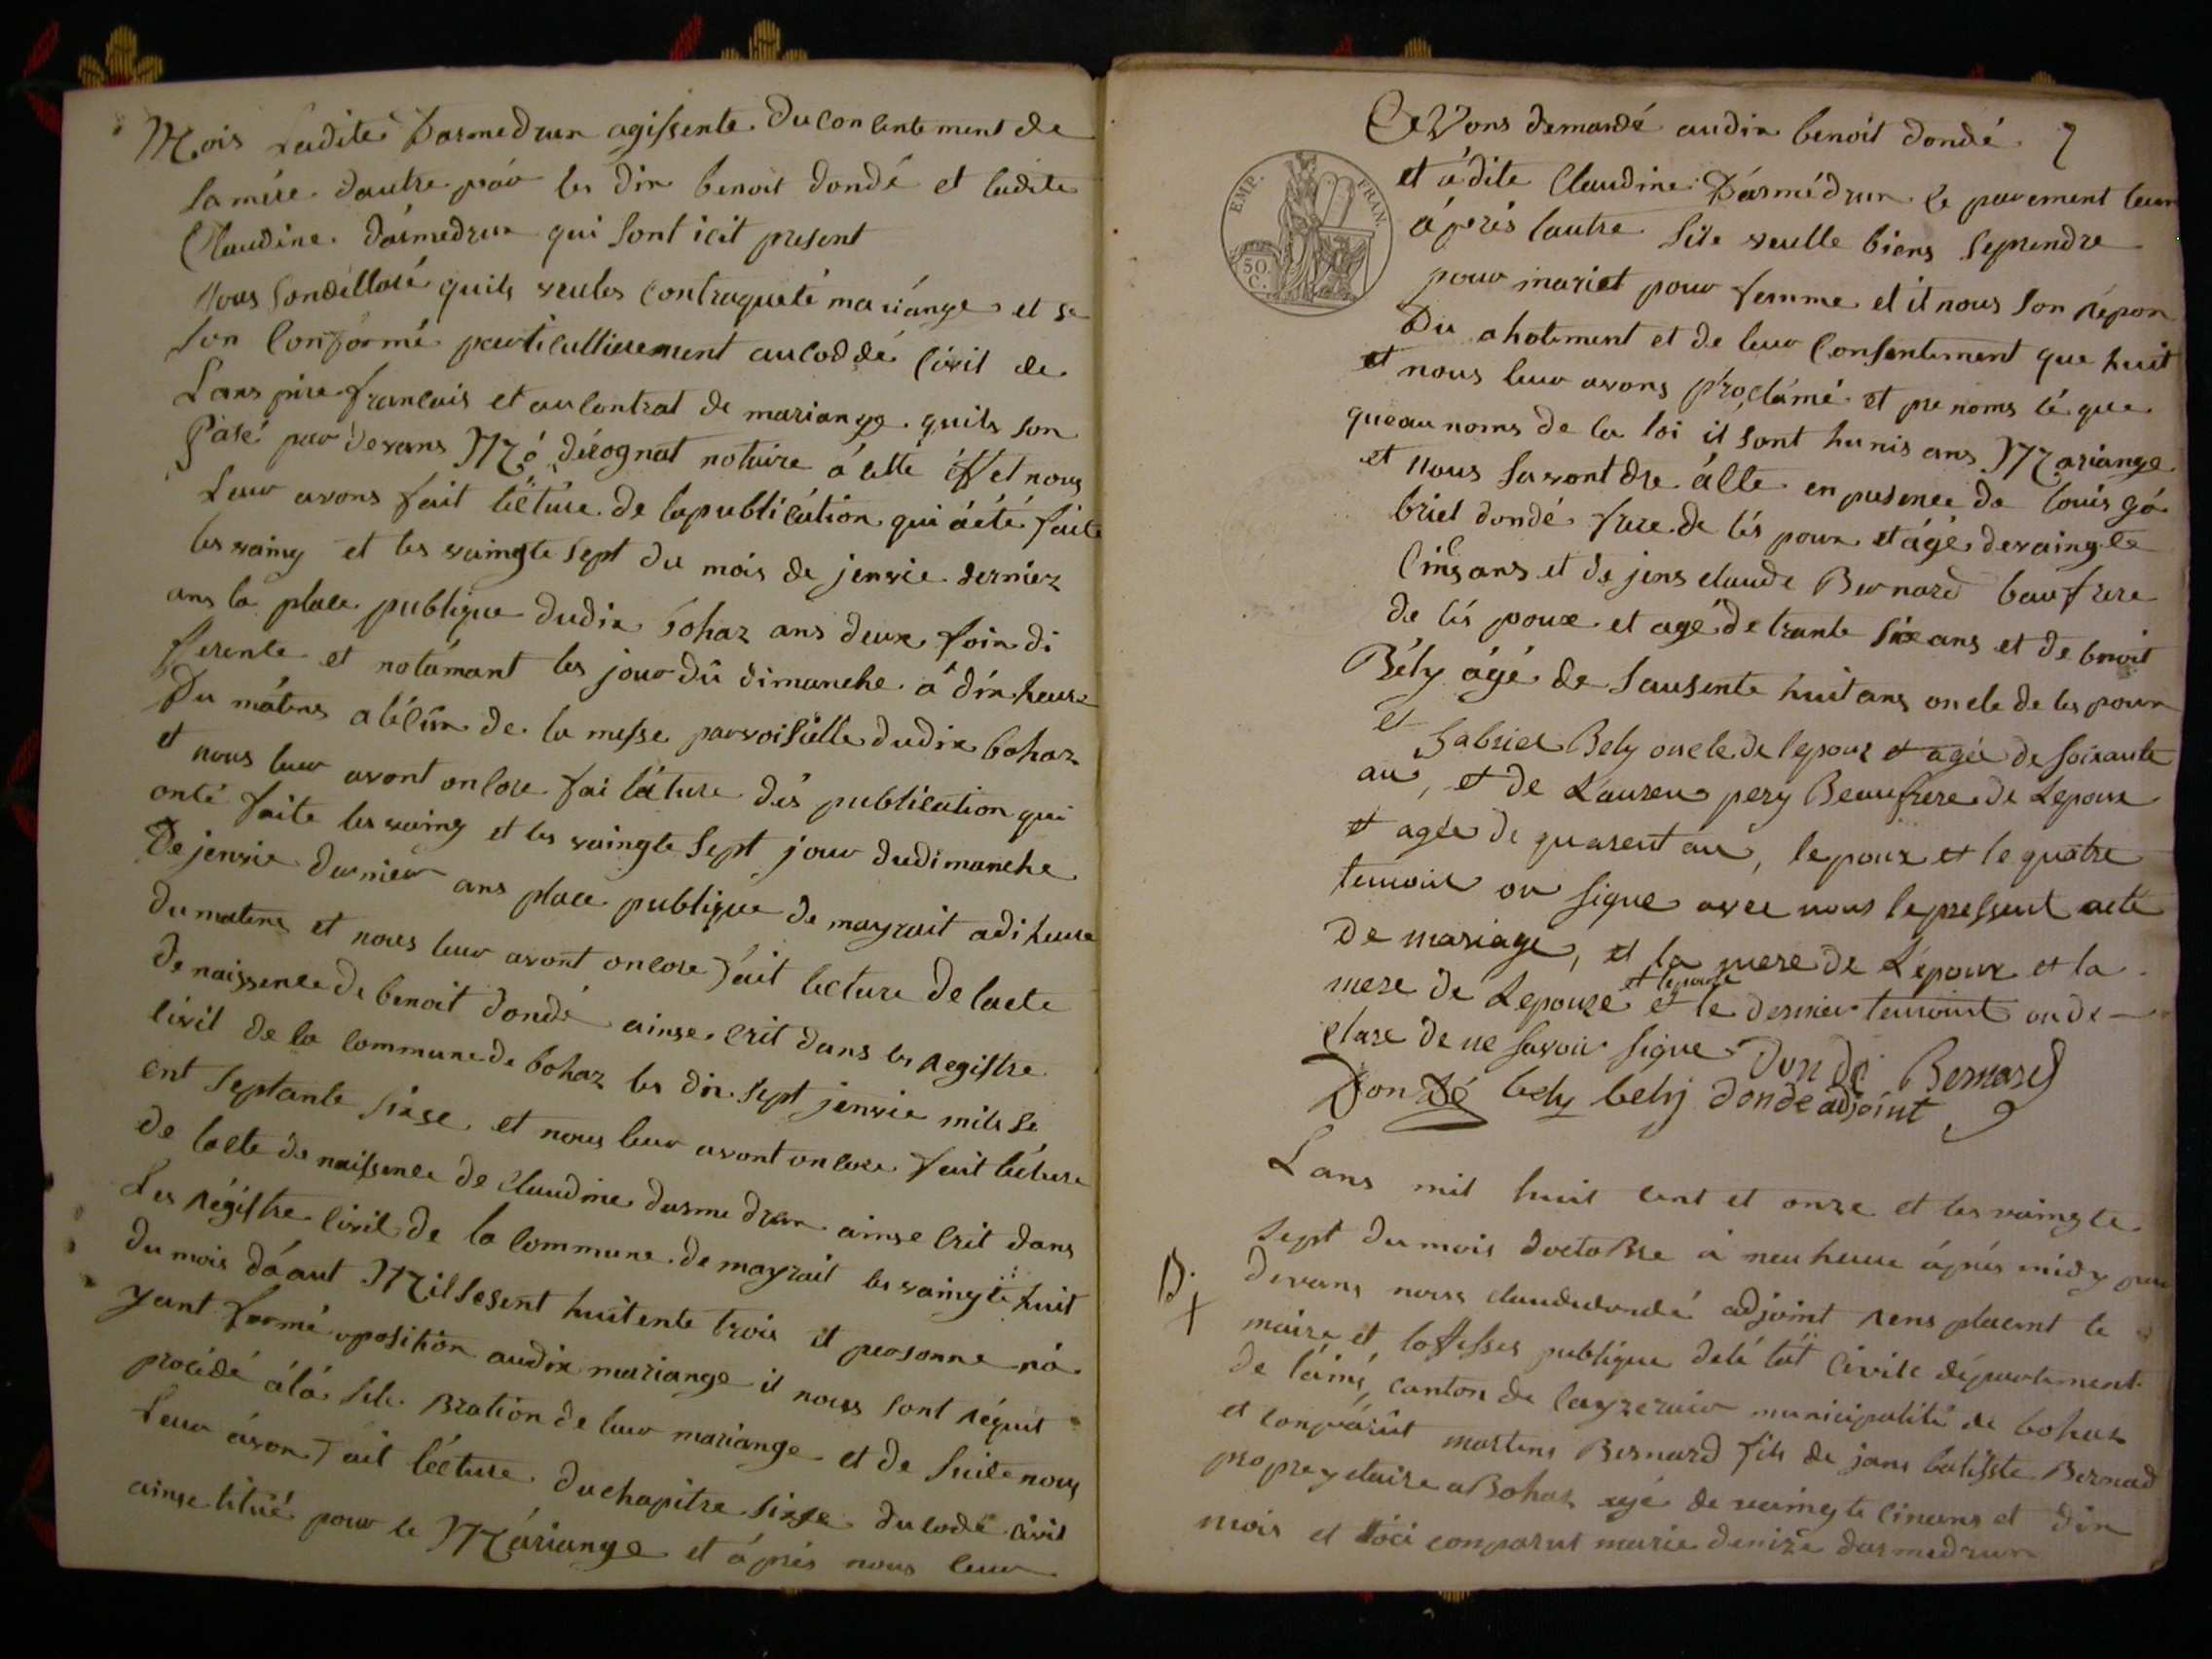 Mois Ladite Darmedrun agissente du consentement de
sa mére dautre par les dix benoit dondé et ladite
Claudine darmedrun qui sont icit present
Nous Son déllaré quils veules contraqueté mariange et se
son Conformé particullierement aucoddé Civil de
Lans pire francais et au contrat de mariange quils son
Pasé par devans Mé dérognat notaire á cette Effet nous
Leur avons fait lécture de la publication qui áété faite
les vaing et les vaingte sept du mois de jenvie dernier
ans la place publique dudix bohaz ans deux foix di
fferente et notámant les jour dû dimanche á dix heure
Du mátens alécûe de la messe parvoisielle dudix bohaz
et nous leur avont oncore fai lécture dés publication qui
onté faite les vaing et les vaingte Sept jour dudimanche
De jenvie dernier ans place publique de mayrait adi heure
Du matens et nous leur avont oncore fait lecture de lacte
de naissence de benoit dondé ainse crit dans les registre
Civil de la Commune de bohaz les dix sept jenvie mils se
ent septante sixse et nous leur avont oncore fait lécture
de lacte de naissence de Claudine darmedrun ainse crit dans
Les régistre Civil de la Commune de mayrait les vaingte huit
du mois dáaut Mil sesent huitente trois et personne ná
yant formé oposition audix mariange il nous sont réquit
procédé álá séle Bration de leur mariange et de Suite nous
Leur ávon fait lécture du chapitre sixse du code Civil
ainse titué pour le Máriange et áprés nous leur
Avons demandé audix benoit dondé 7
et ádite Claudine Dármédrun le parement leur
EMP. FRAN.
50 C.
áprés lautre Sile veulle biens seprendre
pour mariet pour femme et il nous son répon
Du ahotement et de leur Consentement que huit
et nous leur avons proclámé et prenoms lé que
queau noms de la loi il sont hunis ans Mariange
et Nous Savont dre álle en presence de louis gá
briel dondé frere de lés poux et ágé devaingte
Cinq ans et de jens claude Bernard baufrere
de lés poux et agé de trante six ans et de benoit
Bély ágé de sausente huit ans oncle de les poux
et Gabriel Bely oncle de lepoux et agée de soixante
an, et de Lauren pery Beaufrere de Lepoux
et agée de quarent an, lepoux et le quatre
temoins on signe avec nous le pressent acte
De mariage, et la mere de Lepoux et la
mere de Lepouze et lepouze et le dernier temoins on de
clare de ne savoir signe Dondé Bernard
Dondé bely bely donde adjoint
Lans mil huit cent et onze et les vaingte
sept du mois doctoBre á neu heure áprés midy par
D. devans nous claude dondé adjoint rens placent le
maire et loffisses publique delé tat Civile département
de láins, canton de Ceyzeriar municipalité de bohaz
et conparût martens Bernard fils de jans batiste Bernad
propreyetaire aBohaz agé de vaingte cincans et dix
mois et Aóci comparut marie denize darmedrun